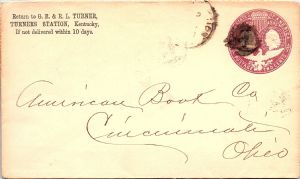 Return to G. E. & R. L. TURNER,
TURNERS STATION, Kentucky,
If not delivered within 10 days.
American Book Co.
Cincinnati
Ohio